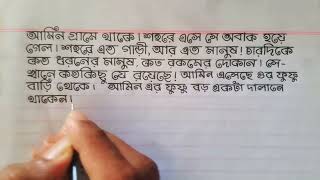 আমিন গ্রামে থাকে। শহরে এসে সে অবাক হয়ে
গেল। শহরে এত গাড়ী, আর এত মানুষ! চারদিকে
কত ধরনের মানুষ, কত রকমের দোকান। সে-
খানে কতকিছু যে রয়েছে! আমিন এসেছে ওর ফুফু
বাড়ি থেকে। আমিন এর ফুফু বড় একটা দালানে
থাকেন।